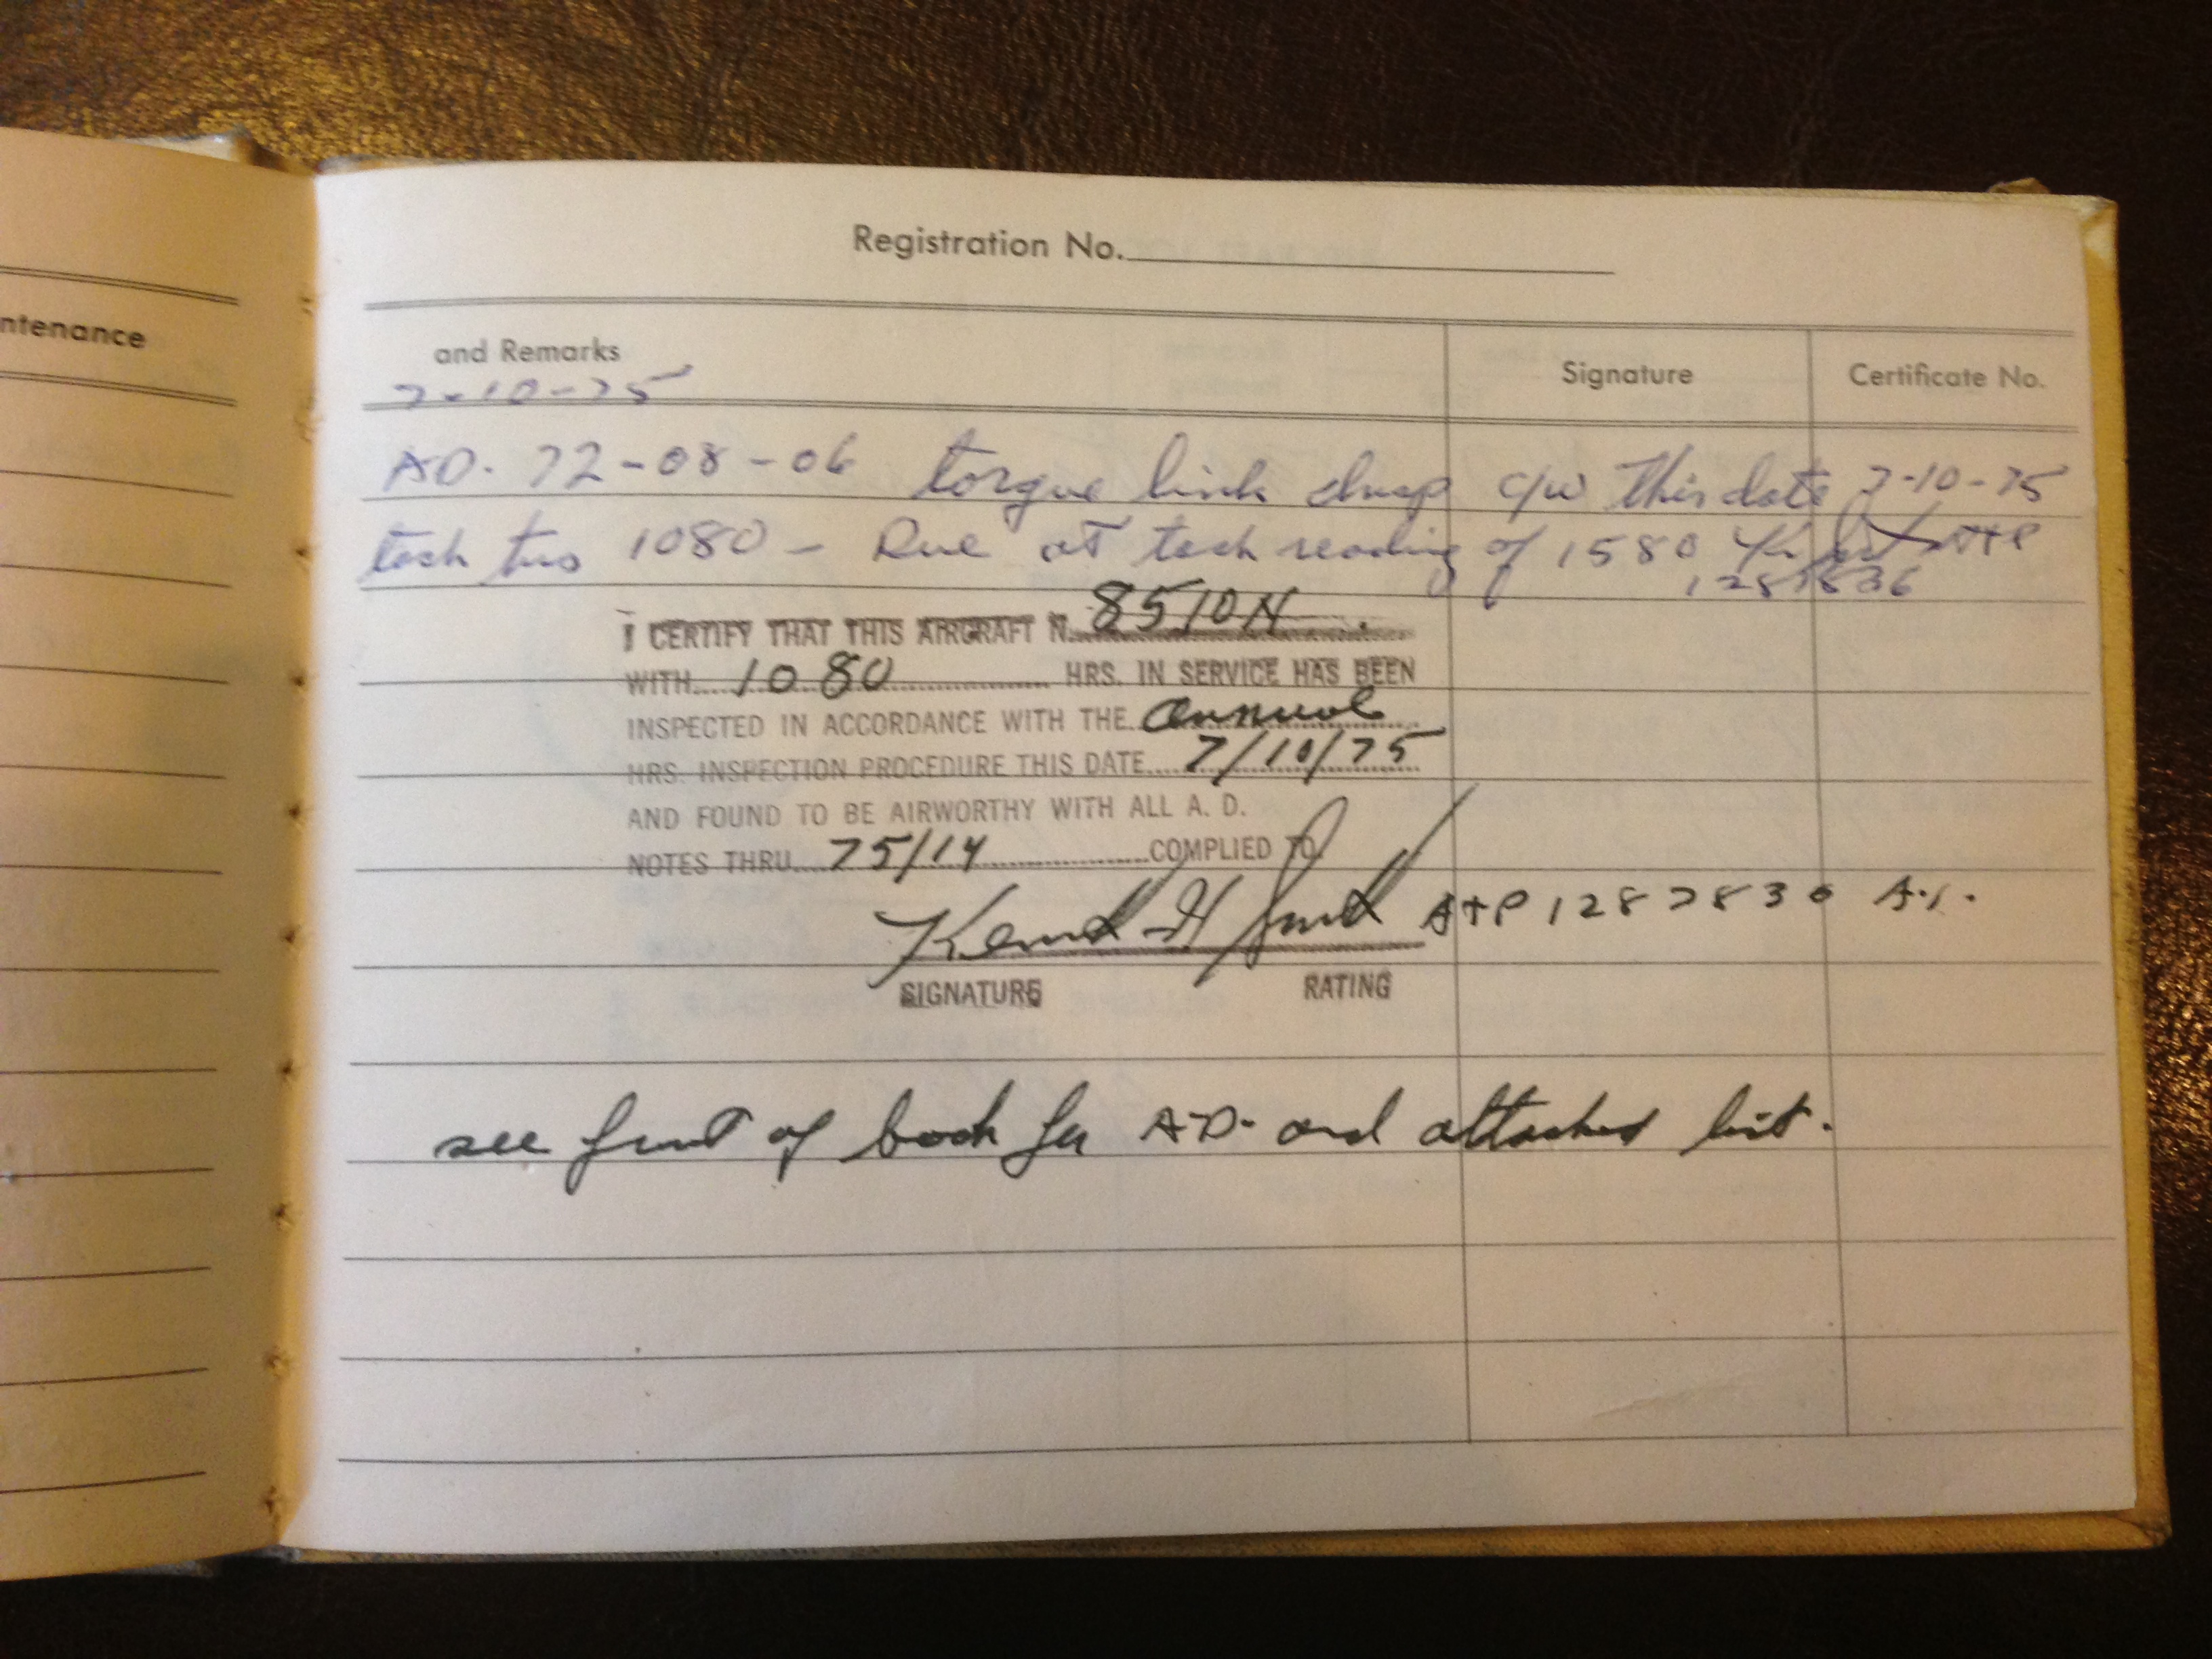 ntenance
Registration No.
and Remarks
Signature
Certificate No.
7-10-75
AD. 72-08-06 torque link insp c/w this date 7-10-75
tach tns 1080 - Due at tach reading of 1580 A+P
I CERTIFY THAT THIS AIRCRAFT N. 8510N
WITH 1080 HRS. IN SERVICE HAS BEEN
INSPECTED IN ACCORDANCE WITH THE annual
HRS. INSPECTION PROCEDURE THIS DATE 7/10/75
AND FOUND TO BE AIRWORTHY WITH ALL A. D.
NOTES THRU 75/14 COMPLIED TO.
A+P 1287836 A.I.
SIGNATURE RATING
see front of book for A.D. and attached list.